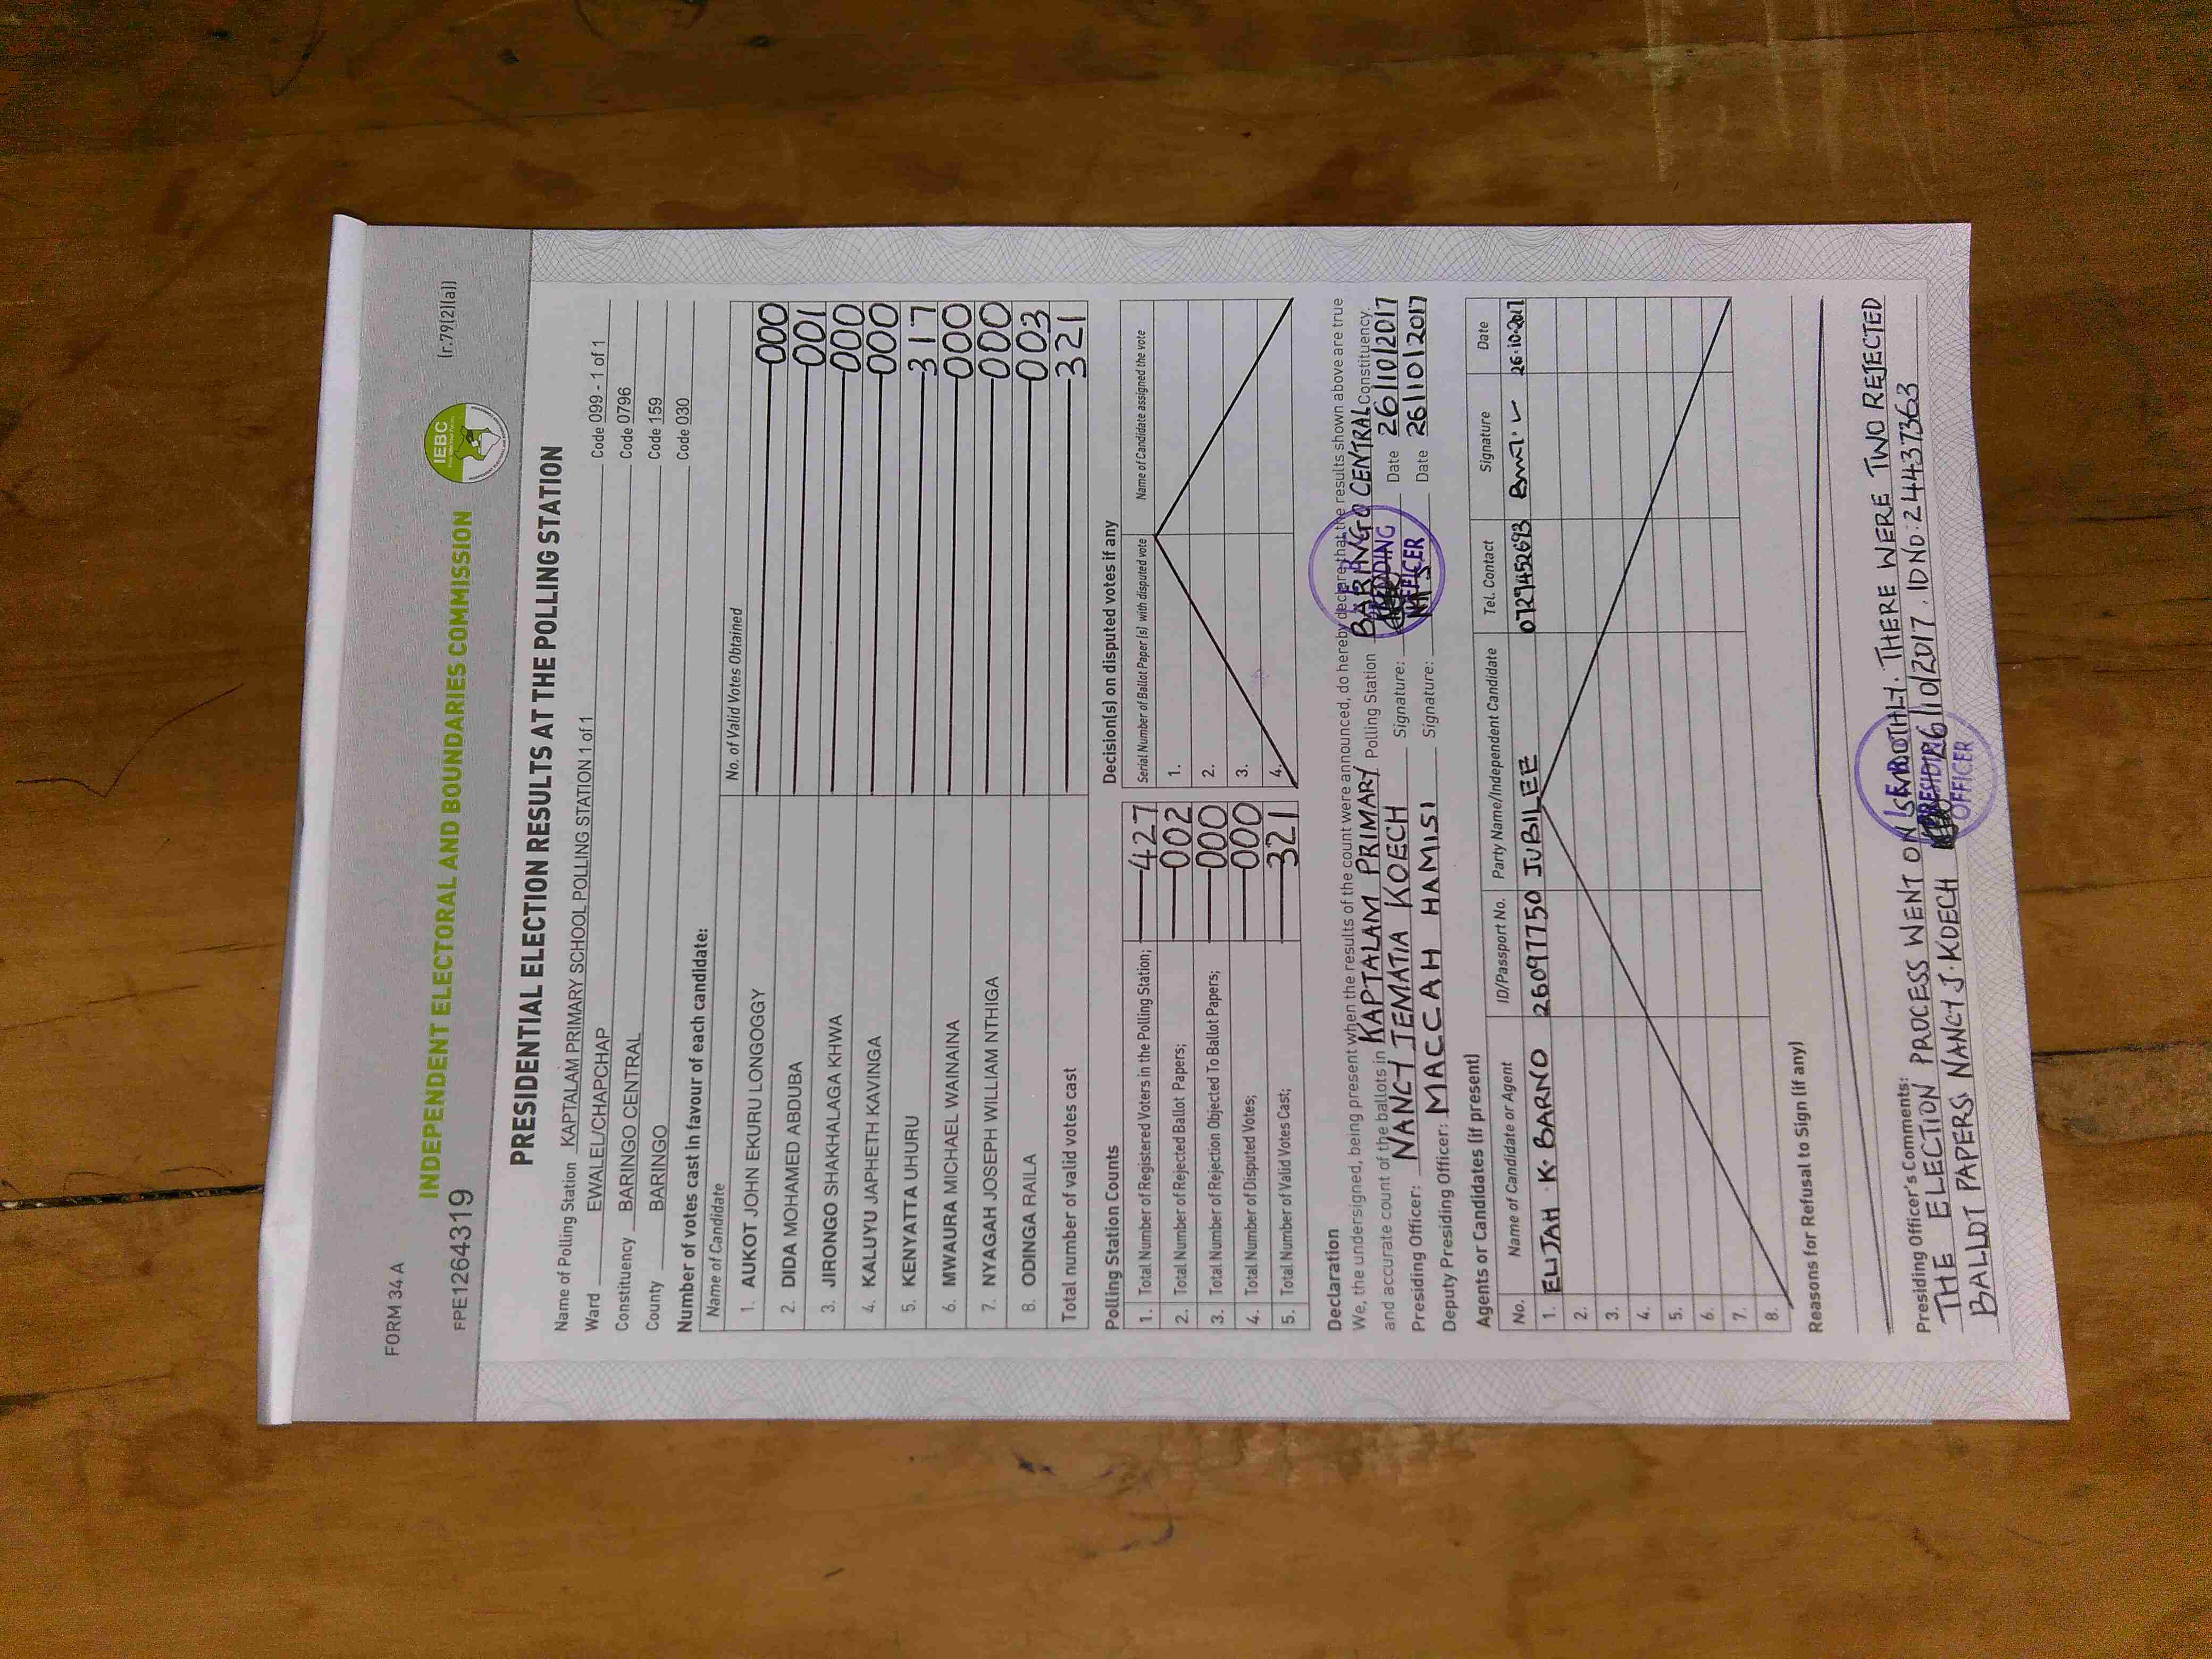 FORM 34 A
(r.79(2)(a))
INDEPENDENT ELECTORAL AND BOUNDARIES COMMISSION
IEBC
FPE1264319
PRESIDENTIAL ELECTION RESULTS AT THE POLLING STATION
Name of Polling Station KAPTALAM PRIMARY SCHOOL POLLING STATION 1 of 1 Code 099 - 1 of 1
Ward EWALEL/CHAPCHAP Code 0796
Constituency BARINGO CENTRAL Code 159
County BARINGO Code 030
Number of votes cast in favour of each candidate:
Name of Candidate No. of Valid Votes Obtained
1. AUKOT JOHN EKURU LONGOGGY 000
2. DIDA MOHAMED ABDUBA 001
3. JIRONGO SHAKHALAGA KHWA 000
4. KALUYU JAPHETH KAVINGA 000
5. KENYATTA UHURU 317
6. MWAURA MICHAEL WAINAINA 000
7. NYAGAH JOSEPH WILLIAM NTHIGA 000
8. ODINGA RAILA 003
Total number of valid votes cast 321
Polling Station Counts
1. Total Number of Registered Voters in the Polling Station; 427
2. Total Number of Rejected Ballot Papers; 002
3. Total Number of Rejection Objected To Ballot Papers; 000
4. Total Number of Disputed Votes; 000
5. Total Number of Valid Votes Cast; 321
Decision(s) on disputed votes if any
Serial Number of Ballot Paper (s) with disputed vote Name of Candidate assigned the vote
1.
2.
3.
4.
Declaration
We, the undersigned, being present when the results of the count were announced, do hereby declare that the results shown above are true
and accurate count of the ballots in KAPTALAM PRIMARY Polling Station BARINGO CENTRAL Constituency.
Presiding Officer: NANCY JEMATIA KOECH Signature: Date 26/10/2017
Deputy Presiding Officer: MACCAH HAMISI Signature: Date 26/10/2017
PRESIDING
OFFICER
Agents or Candidates (if present)
No. Name of Candidate or Agent ID/Passport No. Party Name/Independent Candidate Tel. Contact Signature Date
1. ELIJAH K. BARNO 26097750 JUBILEE 0727452693 26.10.2017
2.
3.
4.
5.
6.
7.
8.
Reasons for Refusal to Sign (if any)
Presiding Officer's Comments:
THE ELECTION PROCESS WENT ON SMOOTHLY. THERE WERE TWO REJECTED
BALLOT PAPERS NANCY J. KOECH 26/10/2017. IDNO: 24437363
PRESIDING
OFFICER